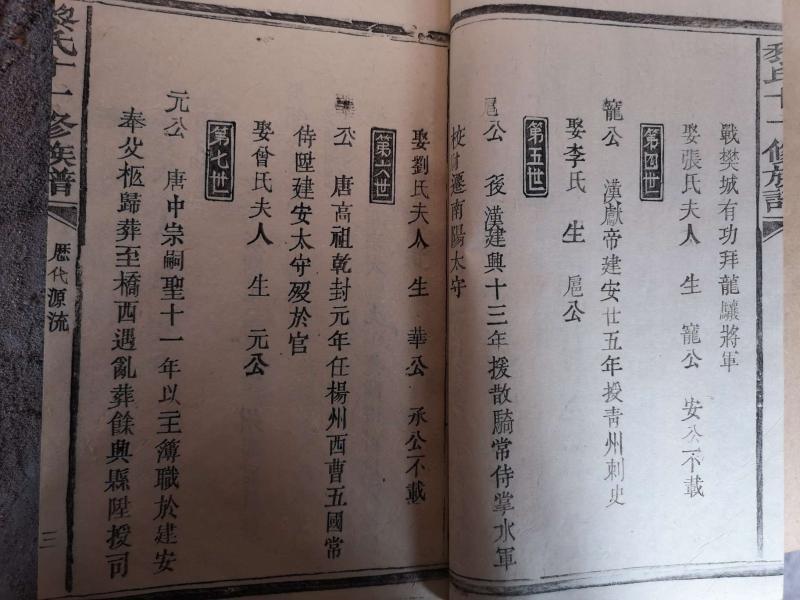 十一修族譜
戰樊城有功拜龍驤將軍
娶張氏夫人 生 寵公 安公不載
第四世
寵公 漢獻帝建安廿五年授青州刺史
娶李氏 生 扈公
第五世
扈公 後漢建興十三年援散騎常侍掌水軍
校尉遷南陽太守
娶劉氏夫人 生 華公 承公不載
第六世
華公 唐高祖乾封元年任楊州西曹五國常
侍陞建安太守歿於官
娶曾氏夫人 生 元公
第七世
元公 唐中宗嗣聖十一年以主簿職於建安
奉父柩歸葬至橋西遇亂葬餘興縣陞授司
黎氏十一修族譜
歷代源流
三